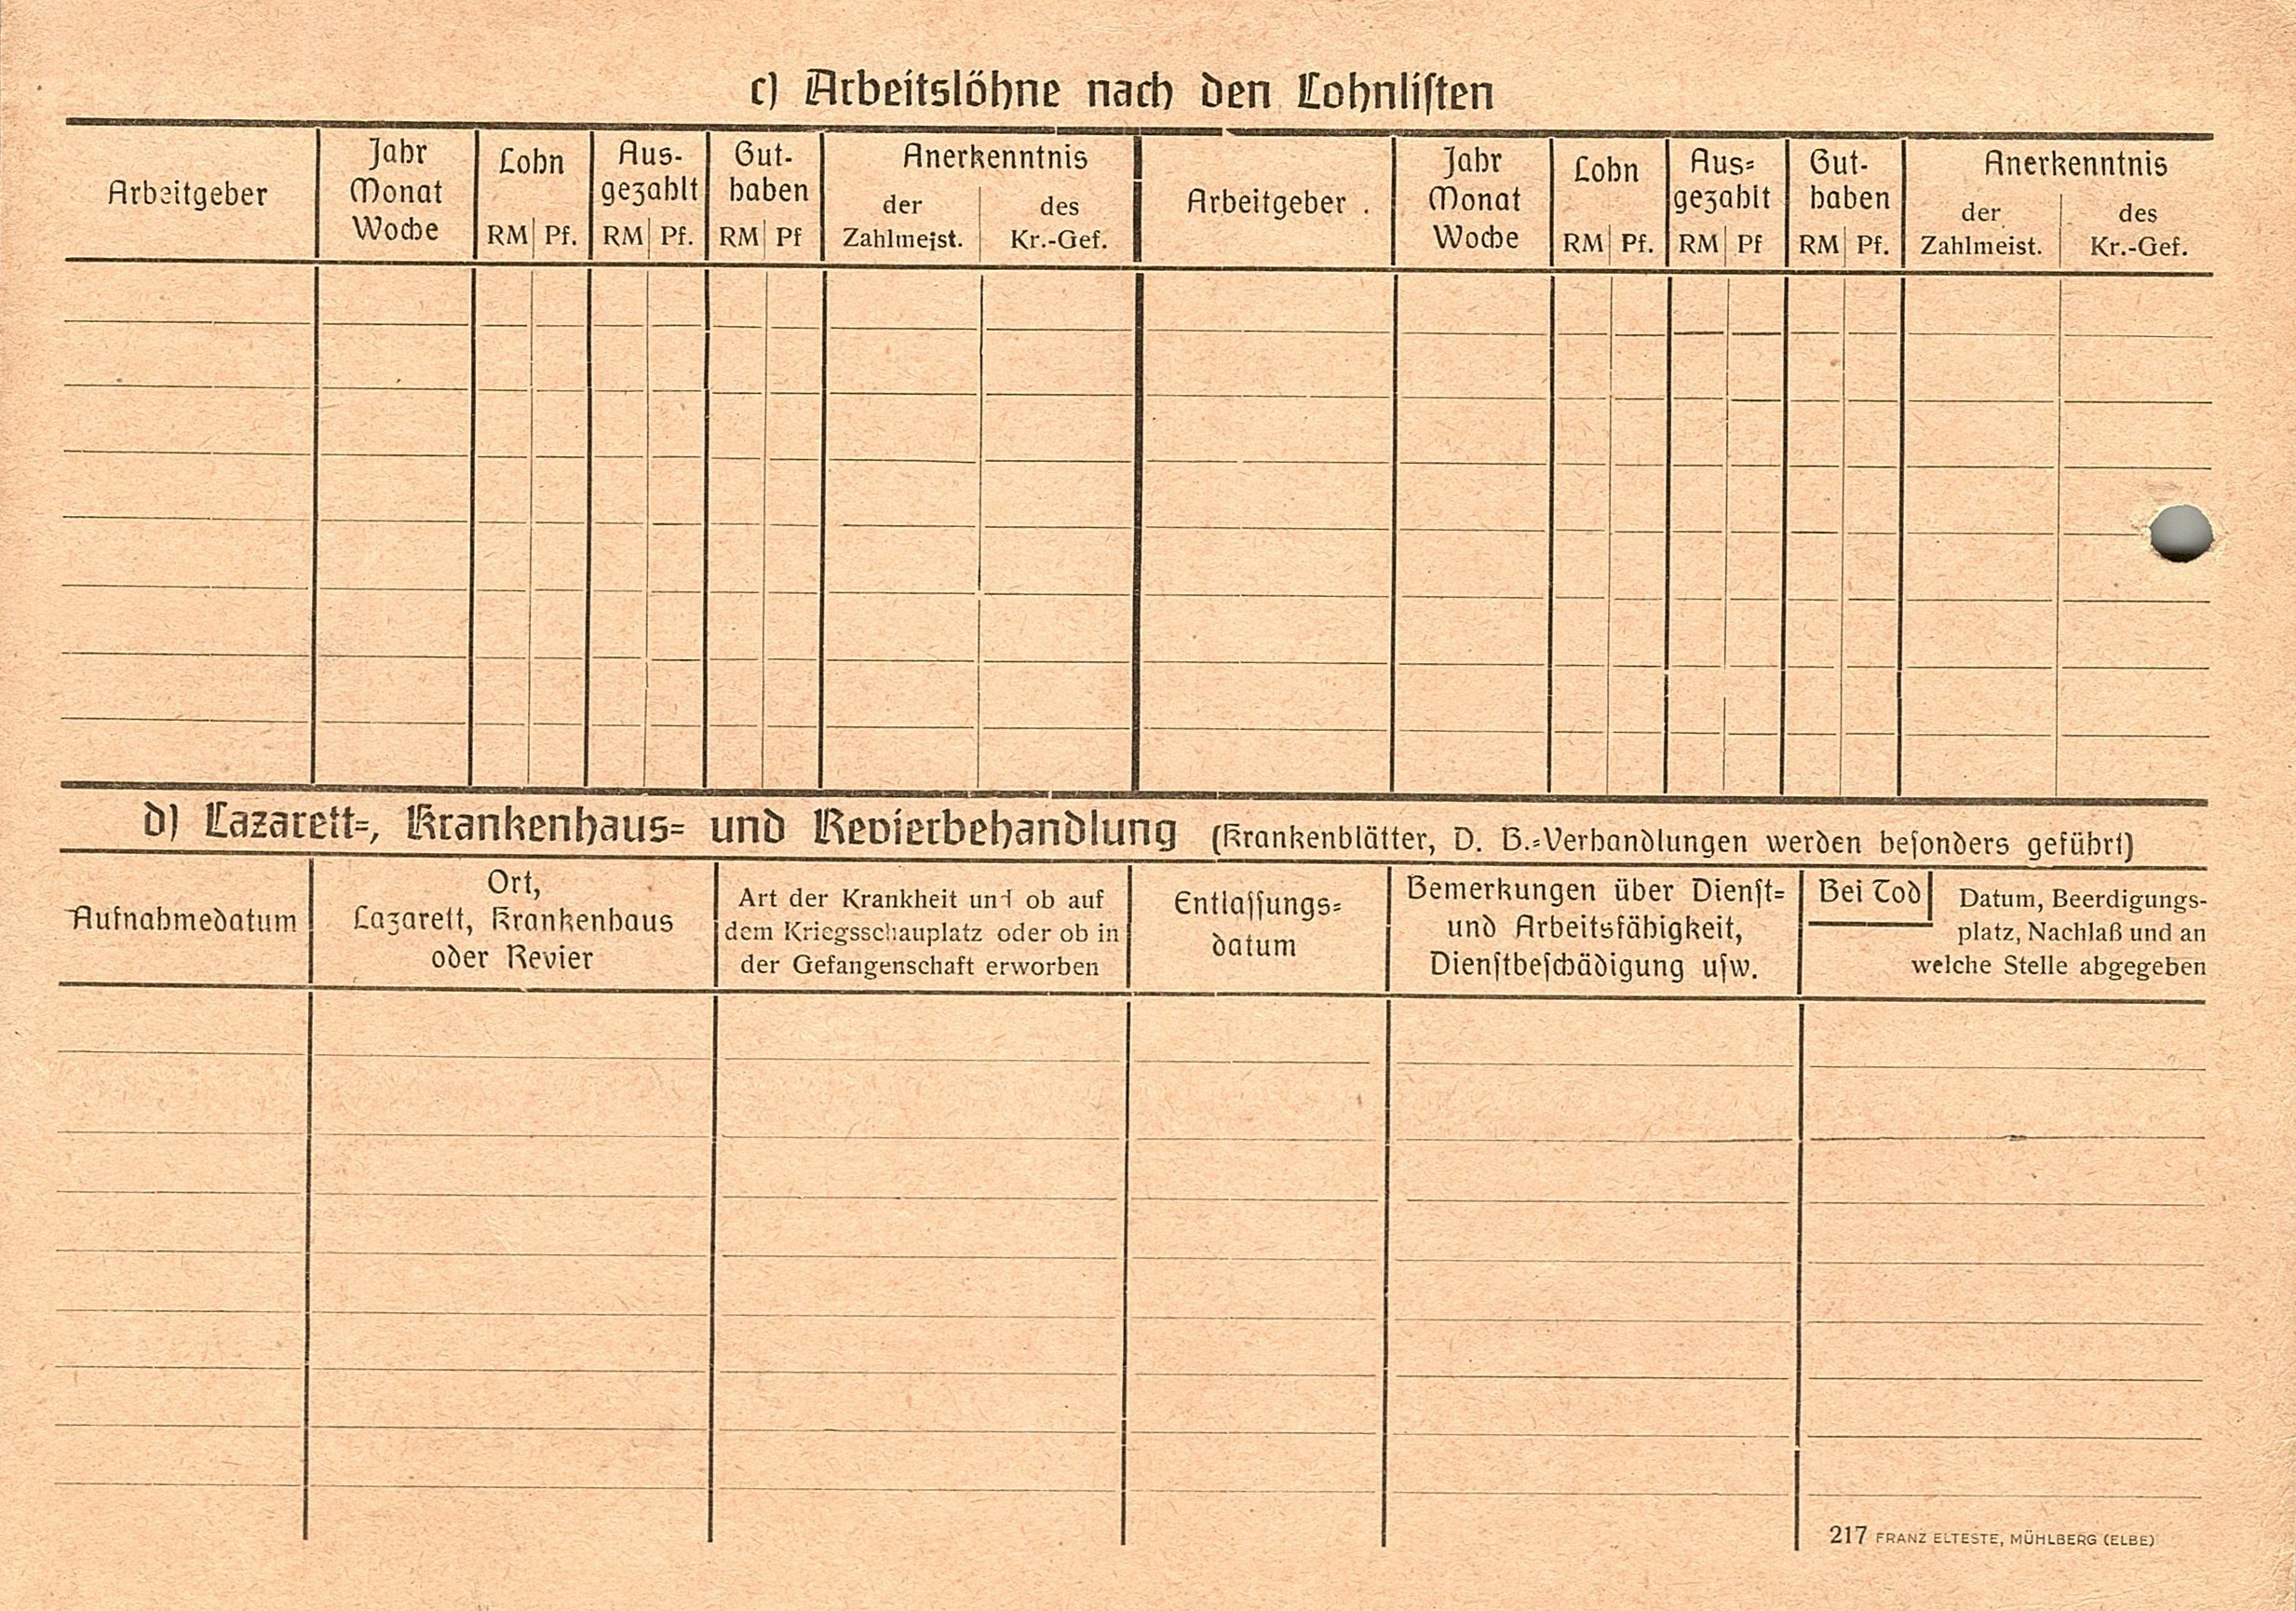 c) Arbeitslöhne nach den Lohnliſten
Arbeitgeber
Jahr
Monat
Woche
Lohn
RM Pf.
Aus-
gezahlt
RM Pf.
Gut-
haben
RM Pf
Anerkenntnis
der
Zahlmeist.
des
Kr.-Gef.
Arbeitgeber .
Jahr
Monat
Woche
Lohn
RM Pf.
Aus=
gezahlt
RM Pf
Gut-
haben
RM Pf.
Anerkenntnis
der
Zahlmeist.
des
Kr.-Gef.
d) Lazarett=, Krankenhaus= und Revierbehandlung (Krankenblätter, D. B.=Verhandlungen werden beſonders geführt)
Aufnahmedatum
Ort,
Lazarett, Krankenhaus
oder Revier
Art der Krankheit und ob auf
dem Kriegsschauplatz oder ob in
der Gefangenschaft erworben
Entlaſſungs=
datum
Bemerkungen über Dienſt=
und Arbeitsfähigkeit,
Dienſtbeſchädigung uſw.
Bei Tod
Datum, Beerdigungs-
platz, Nachlaß und an
welche Stelle abgegeben
217 FRANZ ELTESTE, MÜHLBERG (ELBE)